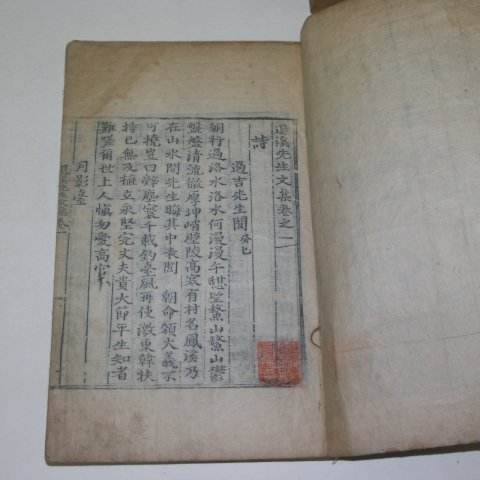 退溪先生文集卷之一
詩
過吉先生閭 癸巳
朝行過洛水洛水何漫漫午憩望鰲山鰲山鬱
盤盤清流徹厚坤峭壁陵高寒有村名鳳溪乃
在山水間先生晦其中表閭 朝命頒大義不
可撓豈曰辭塵寰千載釣臺風再使激東韓扶
持已無及植立永堅完丈夫貴大節平生知者
難嗟爾世上人愼勿愛高官
月影臺